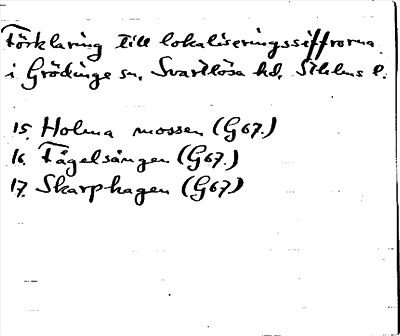 Förklaring till lokaliseringssiffrorna
i Grödinge sn, Svartlösa hd, Sthlms l.
15. Holma mossen (G67.)
16. Fågelsången (G67.)
17. Skarphagen (G67)